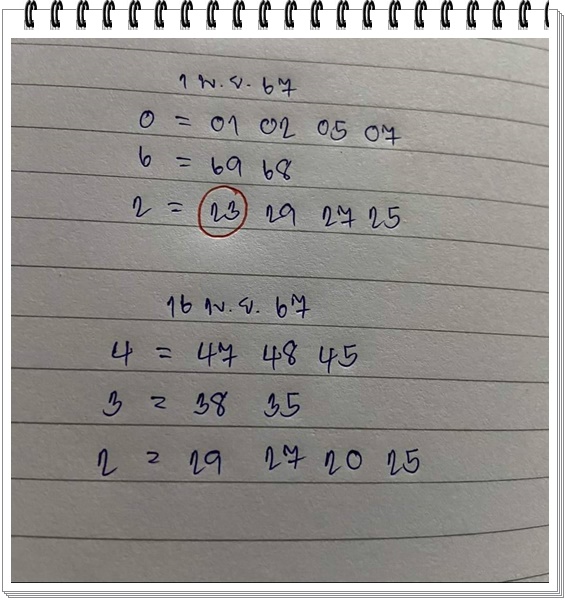 1 พ.ย. 67
0 = 01 02 05 07
6 = 69 68
2 = 23 29 27 25
16 พ.ย. 67
4 = 47 48 45
3 = 38 35
2 = 29 27 20 25